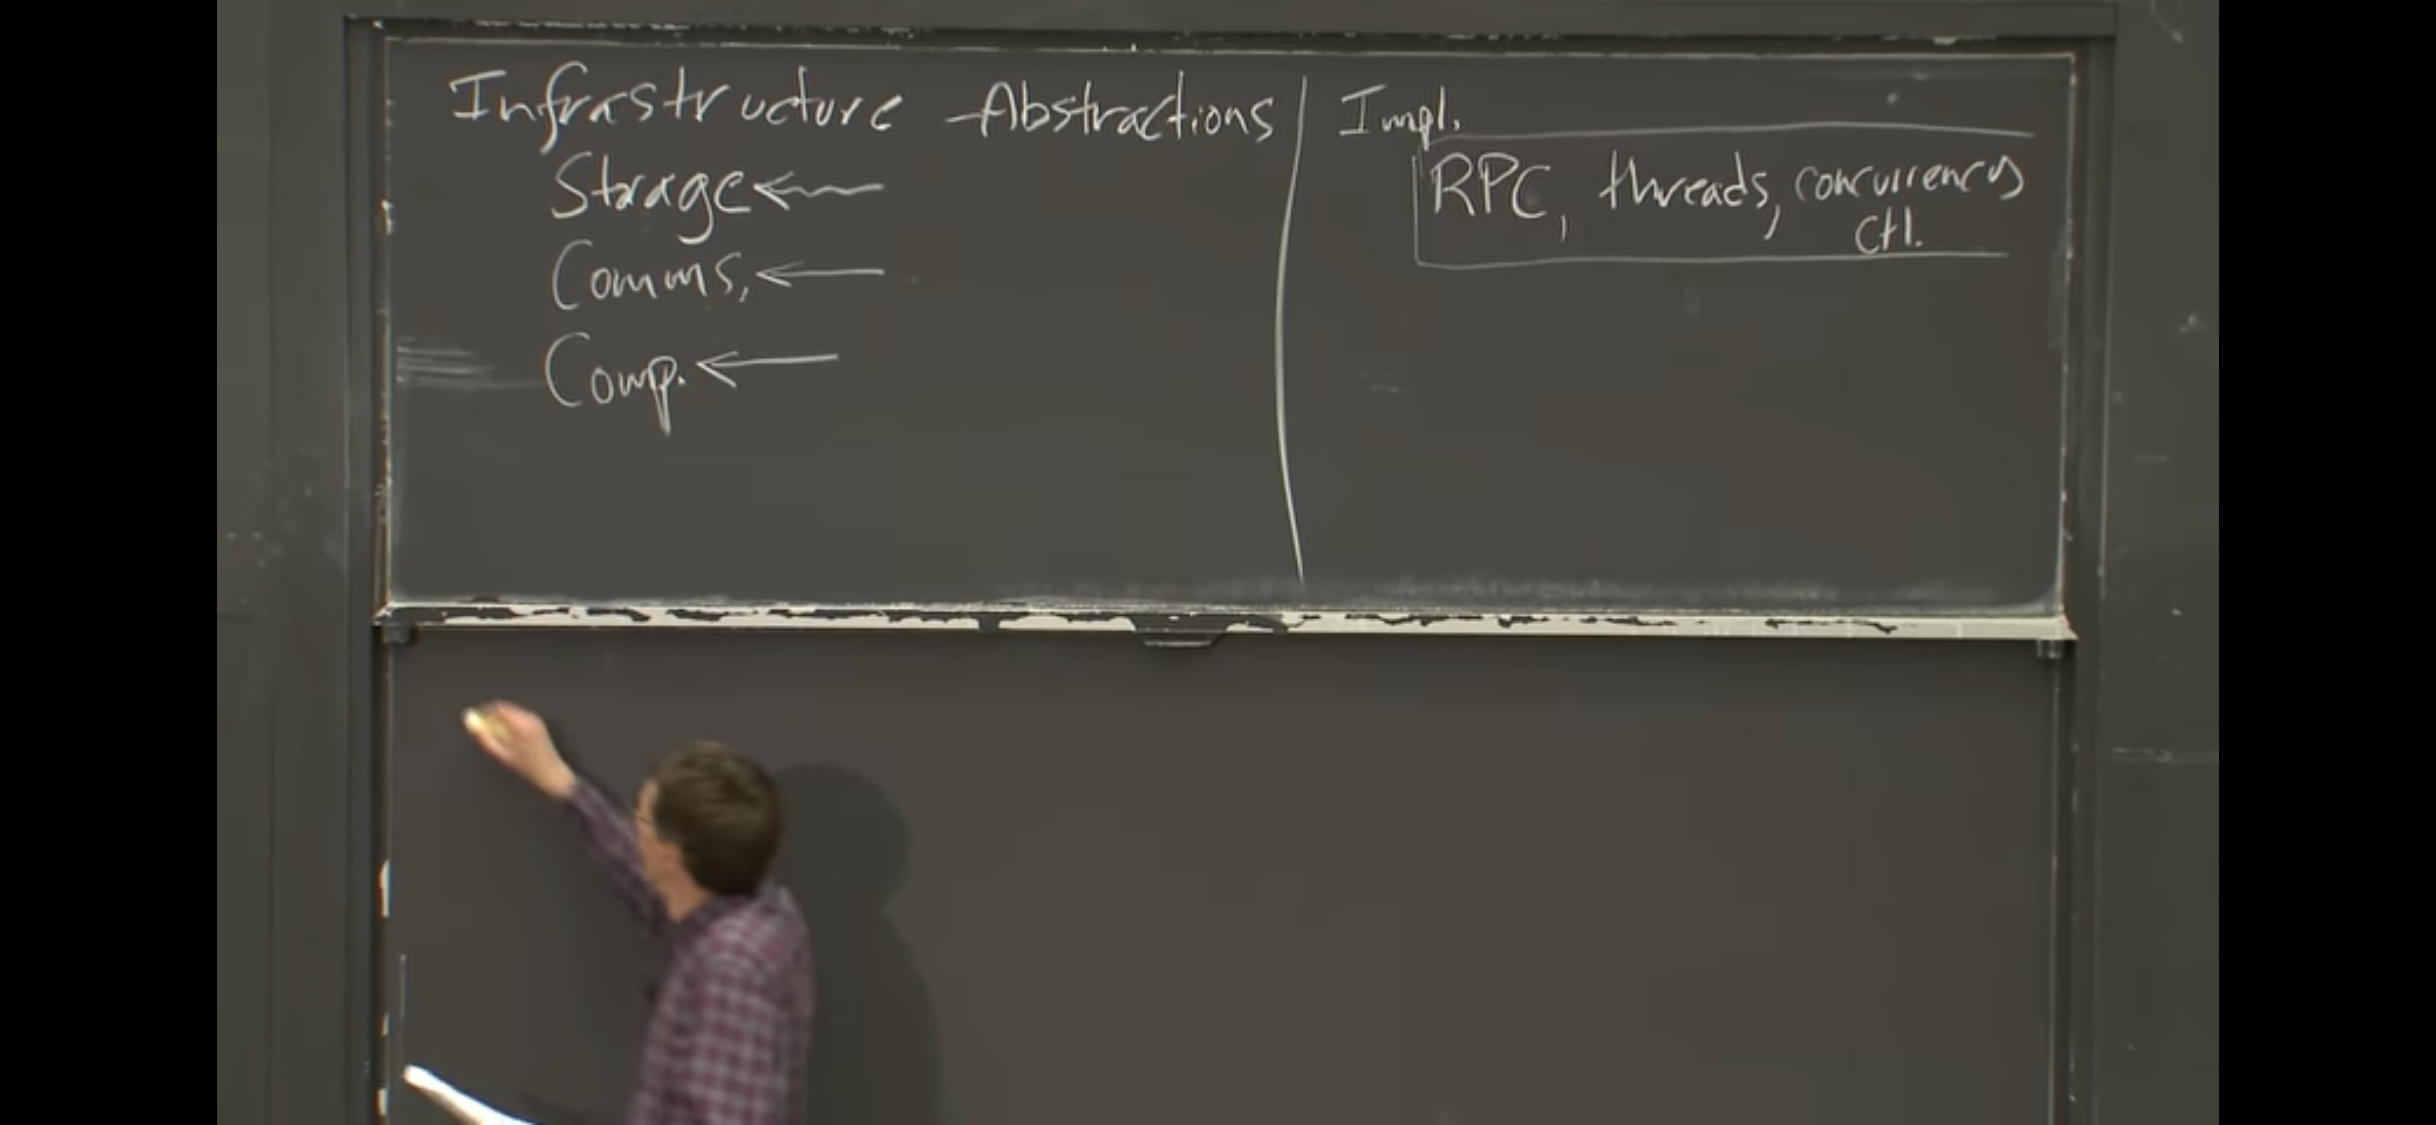 Infrastructure - Abstractions
Storage
Comms,
Comp.
Impl.
RPC, threads, concurrency
ctl.